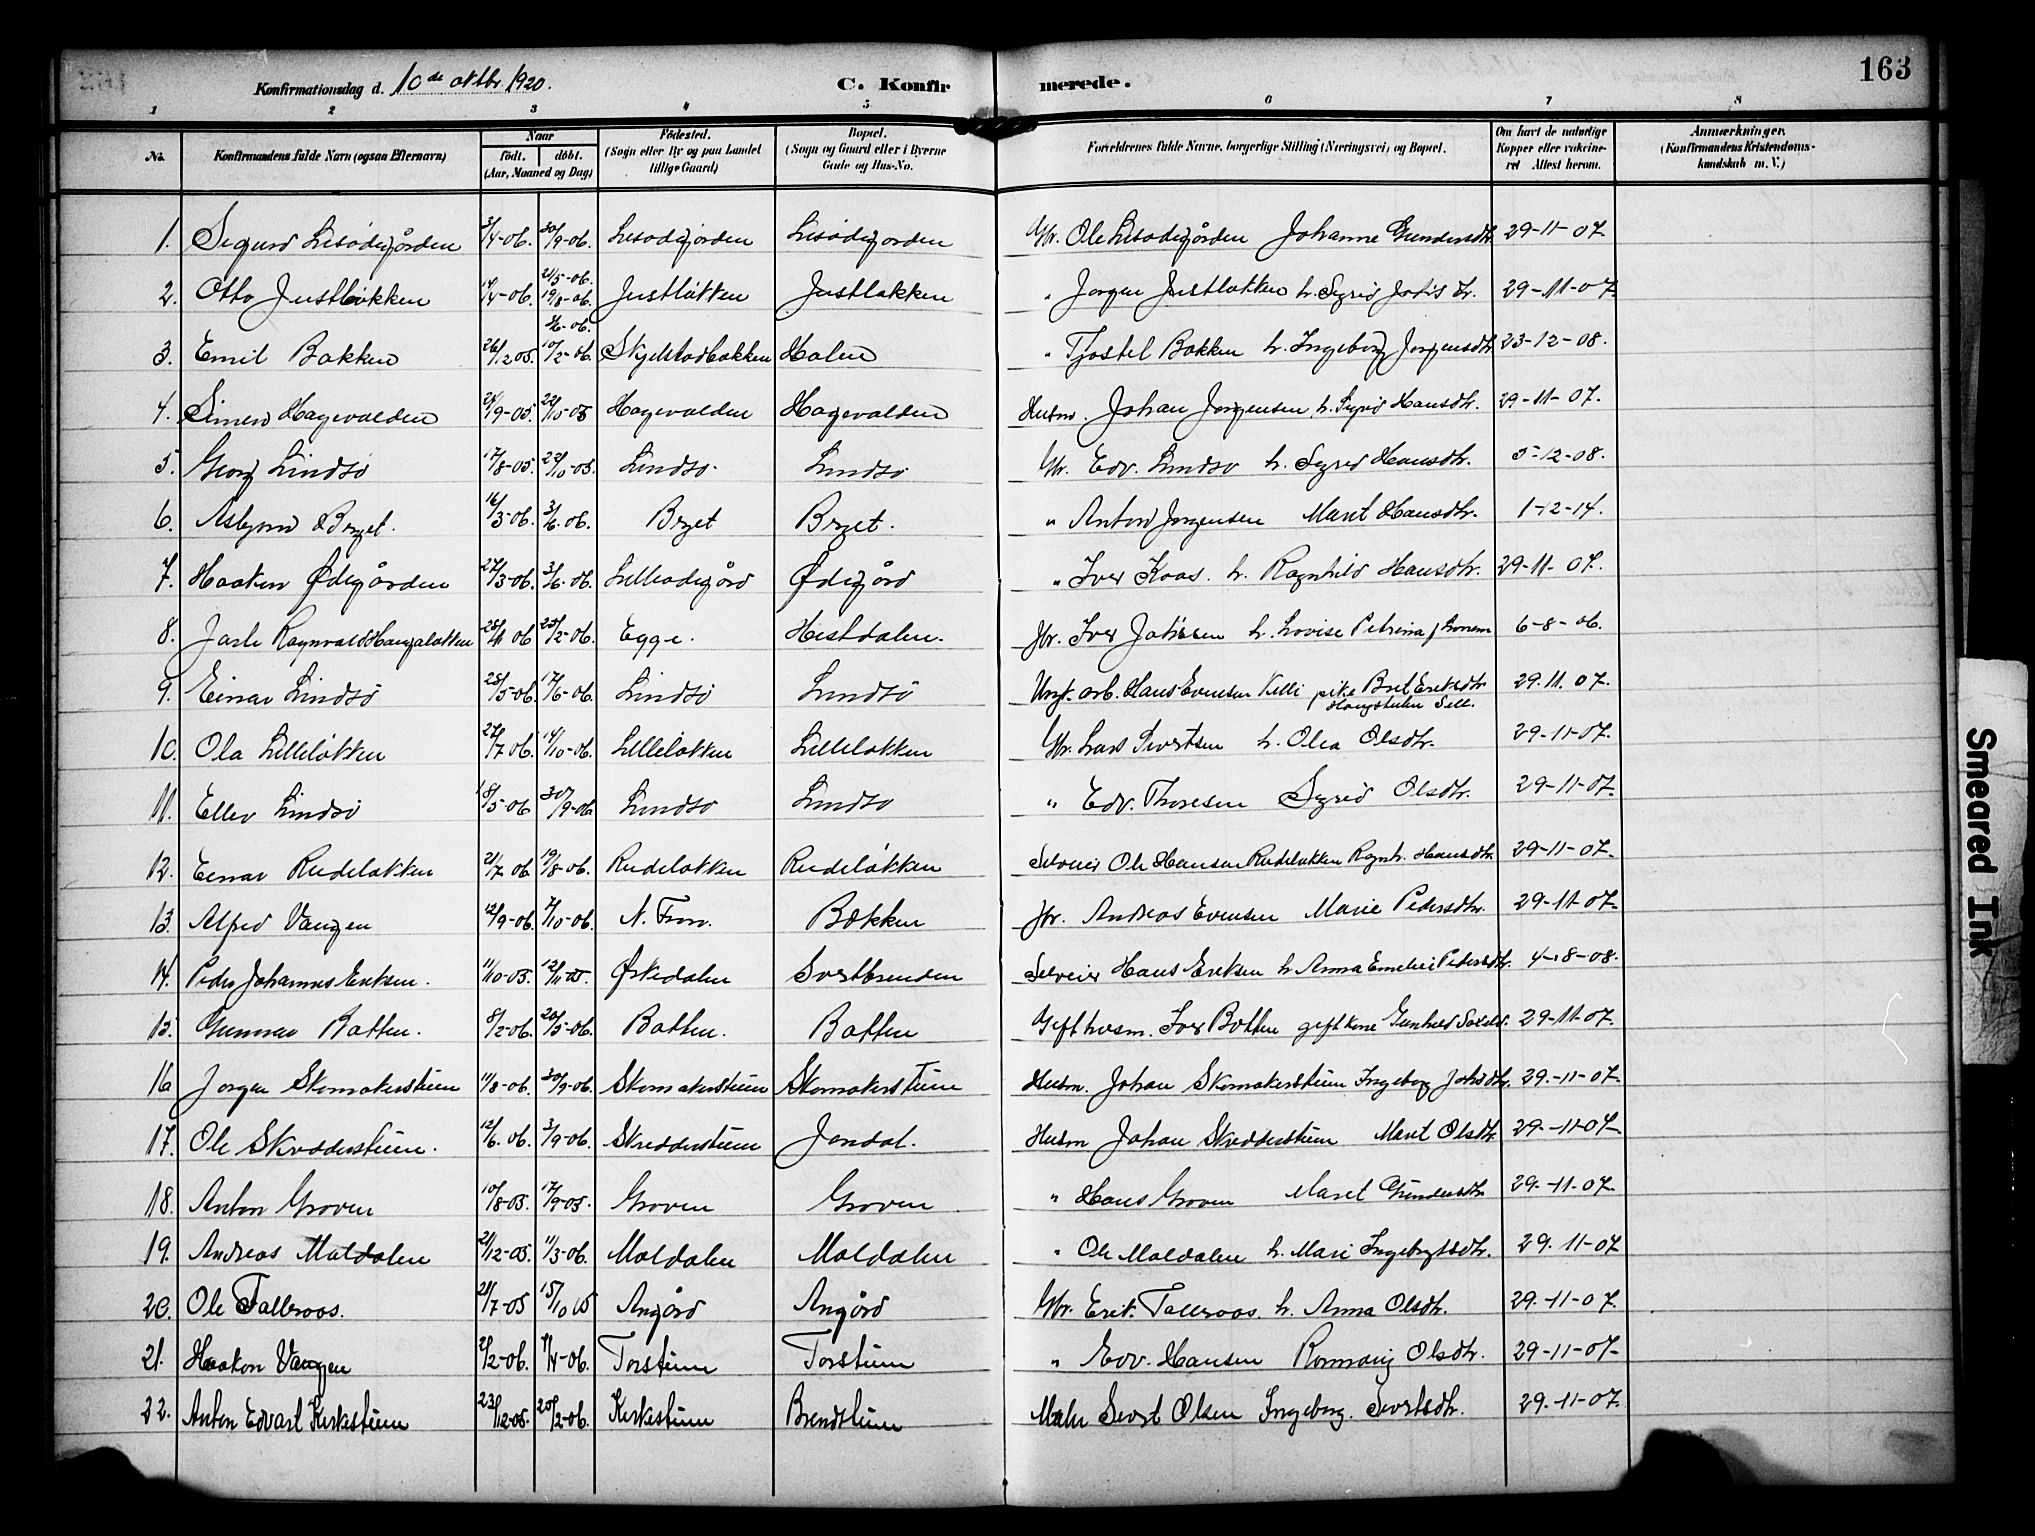 163
Konfirmationsdag d. 10de oktbr. 1920. C. Konfirmerede.
1 2 3 4 5 6 7 8
No. Konfirmandens fulde Navn (ogsaa Efternavn) Naar født. døbt. (Aar, Maaned og Dag) Fødested. (Sogn eller By og paa Landet tillige Gaard) Bopæl. (Sogn og Gaard eller i Byerne Gade og Hus-No. Forældrenes fulde Navne, borgerlige Stilling (Næringsvei) og Bopæl. Om havt de naturlige Kopper eller vakcineret Attest herom. Anmærkninger. (Konfirmandens Kristendomskundskab m. V.)
1. Sigurd Lisødegården 3/4-06. 30/9-06. Lisødegården Lisødegården Gbr. Ole Lisødegården Johanne Gundersdtr. 29-11-07.
2. Otto Justløkken 14/4-06. 21/5-06. 19/8-06. Justløkken Justløkken " Jørgen Justløkken h. Sigrid Johs. dr. 29-11-07.
3. Emil Bakken 26/12 05. 10/2-06. 3/6-06. Skjelstadbakken Holen " Tjøstel Bakken h. Ingeborg Jørgensdtr. 23-12-08.
4. Simen Hagevolden 24/9-05. 22/10-05 Hagevolden Hagevolden Husm. Johan Jørgensen, h. Sigrid Hansdtr. 29-11-07.
5. Georg Lindsø 17/8-05. 22/10-05. Lindsø Lindsø Gbr. Edv. Lindsø h. Sigrid Hansdtr. 5-12-08.
6. Asbjørn Brget. 16/3-06. 3/6-06. Brget Brget. " Anton Jørgensen Marit Hansdtr. 1-12-14.
7. Haaken Ødegården 27/3-06. 3/6-06. Lilleødegård Ødegård " Iver Kaas. h. Ragnhild Hansdtr. 29-11-07.
8. Jarle Ragnvald Haugaløkken 06 25/2-06. Egge. Hestdalen. Jbr. Iver Johnsen h. Lovise Petrina 6-8-06.
9. Einar Lindsø 28/5-06. 17/6-06. Lindsø Lindsø Ungk. arb. Hans Evensen Velli pike Brit Eriksdtr. Haugstulen Sell. 29.11.07.
10. Ola Lilleløkken 27/7 06. 14/10-06. Lilleløkken Lilleløkken Gbr. Lars Sivertsen h. Olea Olsdtr. 29-11-07.
11. Ellev Lindsø 18/5-06 30/9-06 Lindsø Lindsø " Edv. Thoresen Sigrid Olsdtr. 29-11-07.
12. Einar Rudeløkken 21/7 06 19/8-06. Rudeløkken Rudeløkken Selveier Ole Hansen Rudeløkken Ragnh. Hansdtr. 29-11-07.
13. Alfred Vangen 12/9-06. 7/10-06. N. Fron. Bækken Jbr. Andreas Evensen Marie Pedersdtr. 29-11-07.
14. Peder Johannes Eriksen. 11/10-05. 12/11-05. Øskedalen Svartbrenden Selveier Hans Eriksen h. Anna Emelie Pedersdtr. 4-8-08.
15. Gunnar Botten. 8/2-06. 20/5-06. Botten. Botten Gift husm. Iver Botten gift kone Gunhild 29-11-07.
16 Jørgen Skomakerstuen 11/8-06. 30/9-06. Skomakerstuen Skomakerstuen Husm. Johan Skomakerstuen Ingeborg Johsdtr. 29.-11-07.
17. Ole Skrædderstuen. 12/6. 06. 3/9-06. Skredderstuen Jondal. Husm Johan Skredderstuen Marit Olsdtr. 29.-11-07.
18. Anton Groven 10/8-05. 17/9-05. Groven Groven " Hans Groven Maret Gundersdtr. 29.-11-07.
19. Andreas Moldalen 21/12-05. 11/3-06. Moldalen Moldalen " Ole Moldalen h. Mari Ingebrgtsdtr. 29.11-07
20. Ole Talleraas. 28/7-05 15/10 05 Angård Angård Gbr. Erik Talleraas. h. Anna Olsdtr. 29.-11-07.
21. Haakon Vangen 2/2-06. 11/4-06. Torstuen Torstuen " Edv. Hansen Rønnaug Olsdtr. 29-11-07-
22. Anton Edvart Kirkestuen 23/12-05. 25/2-06. Kirkestuen Brendstuen Maler Sivert Olsen Ingeborg. Sivertsdtr. 29.-11-07.
Smeared Ink